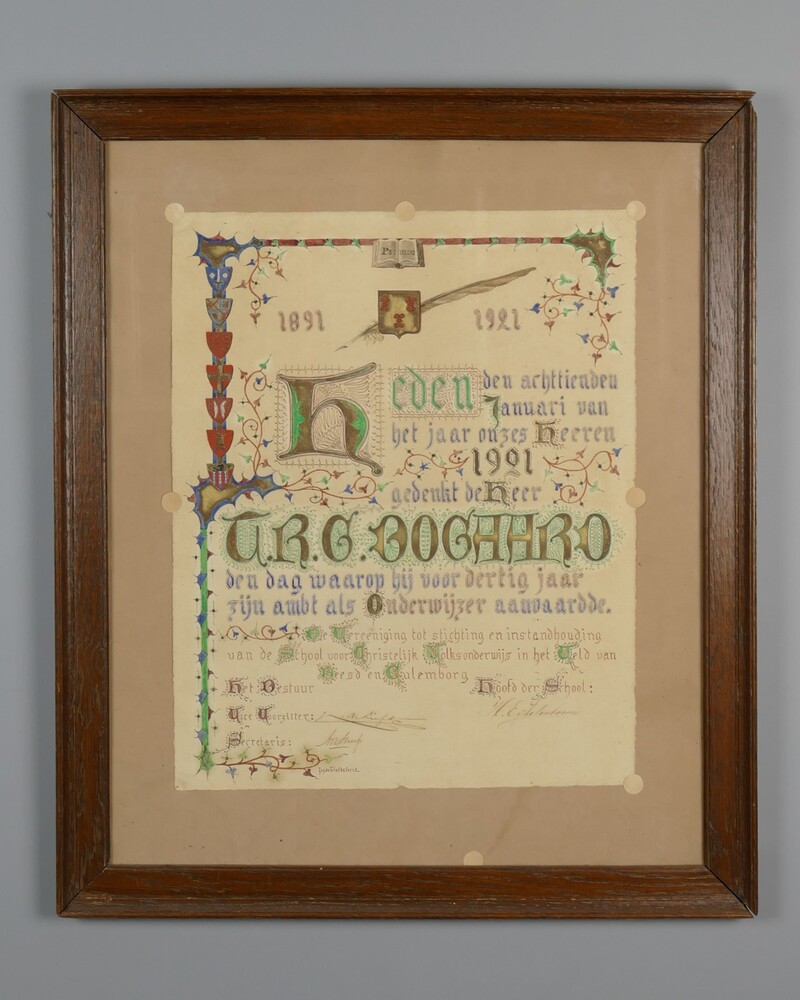 1891 1921
Heden den achttienden
Januari van
het jaar onzes Heeren
1921
gedenkt de Heer
den dag waarop hij voor dertig jaar
zijn ambt als Onderwijzer aanvaardde.
De Vereeniging tot stichting en instandhouding
van de School voor Christelijk Volksonderwijs in het Veld van
Beesd en Culemborg
Het Bestuur Hoofd der School:
Vice Voorzitter:
Secretaris: